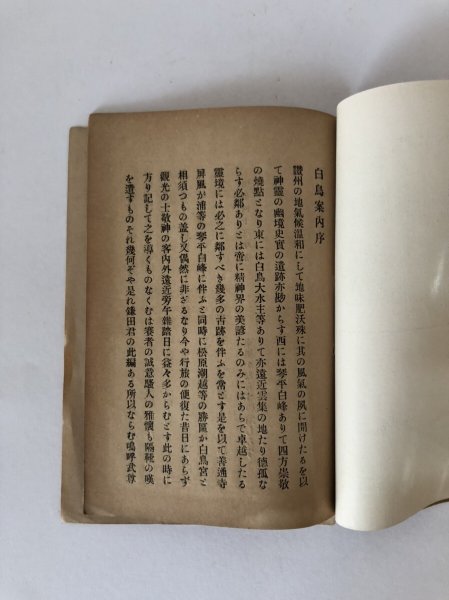 白鳥案内序
讃州の地氣候温和にして地味肥沃殊に其の風氣の夙に開けたるを以
て神靈の幽境史實の遺跡亦尠からす西には琴平白峰ありて四方崇敬
の燒點となり東には白鳥大水主等ありて亦遠近雲集の地たり德孤な
らす必鄰ありとは啻に精神界の美談たるのみにはあらで卓越したる
靈境には必之に鄰すべき幾多の古跡を伴ふを常とす是を以て善通寺
屛風が浦等の琴平白峰に伴ふと同時に松原潮越等の勝區か白鳥宮と
相須つもの蓋し又偶然に非ざるなり今や行旅の便復た昔日にあらず
觀光の士敬神の客内外遠近旁午雜踏日に益々多からむとす此の時に
方り記して之を導くものなくむは賽者の誠意騷人の雅懷も隔靴の嘆
を遺すものそれ幾何ぞや是れ鎌田君の此編ある所以ならむ嗚呼武尊